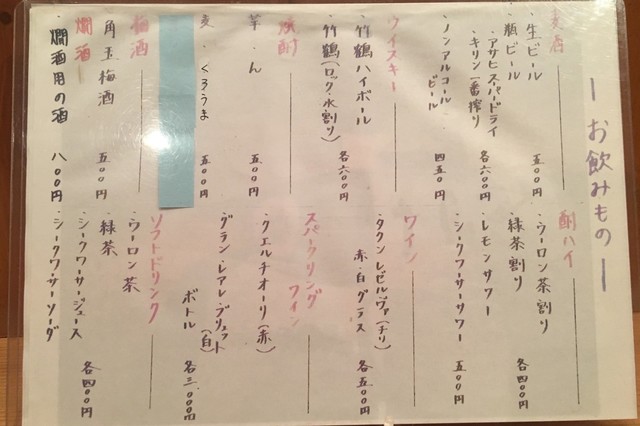 ーお飲みものー
麦酒
・生ビール 五〇〇円
・瓶ビール
・アサヒスーパードライ
・キリン一番搾り 各六〇〇円
・ノンアルコール
ビール 四五〇円
ウイスキー
・竹鶴ハイボール
・竹鶴(ロック・水割り) 各六〇〇円
焼酎
芋 ん 五〇〇円
麦 くろうま 五〇〇円
梅酒
角玉梅酒 五〇〇円
燗酒
・燗酒用の酒 八〇〇円
酎ハイ
・ウーロン茶割り
・緑茶割り 各四〇〇円
・レモンサワー
・シークワーサーサワー 五〇〇円
ワイン
・タクン レゼルヴァ(チリ)
赤・白 グラス 各五〇〇円
スパークリング
ワイン
・クエルチオーリ(赤)
・グラン・レアレ・ブリュット(白)
ボトル 各三、〇〇〇円
ソフトドリンク
・ウーロン茶
・緑茶
・シークワーサージュース
・シークワーサーソーダ 各四〇〇円